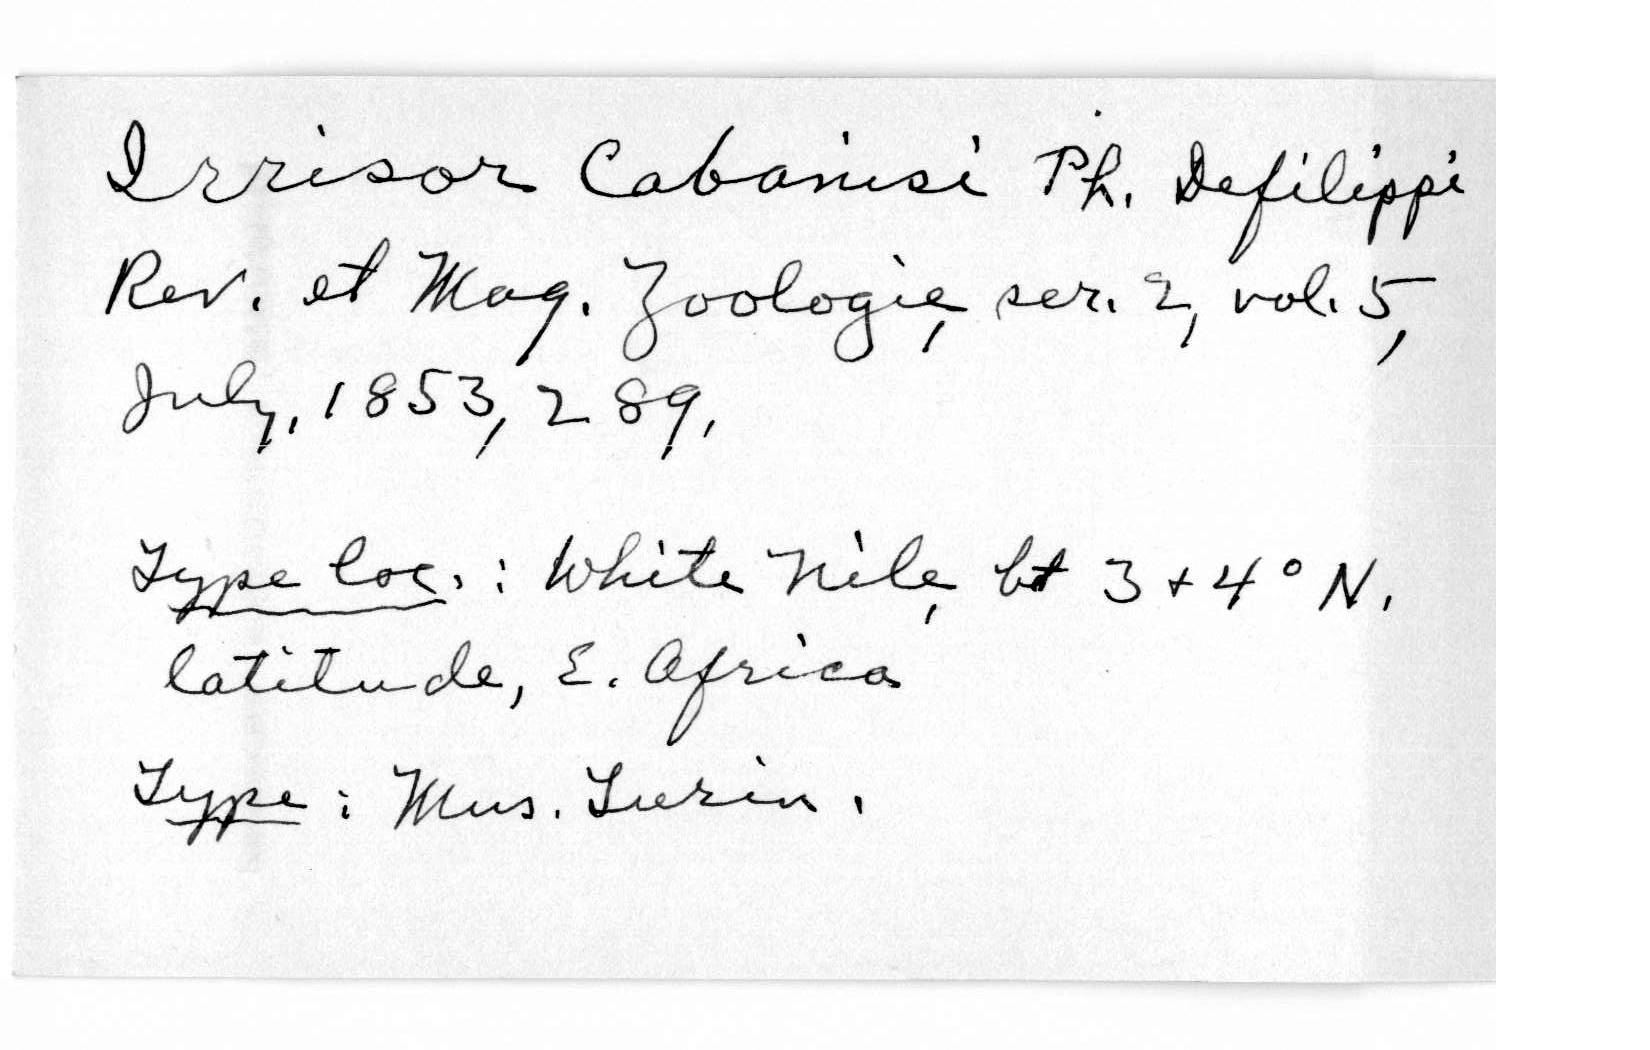 Irrisor Cabanisi Ph. Defilippi
Rev. et Mag. Zoologie, ser. 2, vol. 5,
July, 1853, 289.
Type loc. : White Nile, bt 3 + 4° N.
latitude, E. Africa
Type : Mus. Turin.